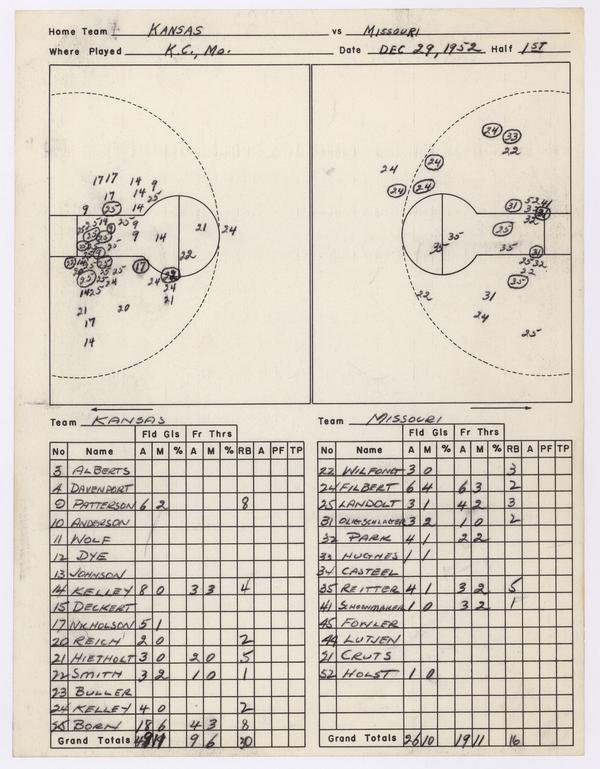 Home Team KANSAS vs MISSOURI
Where Played K.C., Mo. Date DEC 29, 1952 Half 1ST
17 17 14 9
17 14 25
9 25 14
21 24
14
22
17 22
24 24
21
14 25
21 20
17
14
24 33
22
24
24 24
24
31 52 41
25
35
35 35
31
25 32
22
35
22 31
24
25
Team KANSAS
Fld Gls Fr Thrs
No Name A M % A M % RB A PF TP
3 ALBERTS
4 DAVENPORT
9 PATTERSON 6 2 8
10 ANDERSON
11 WOLF
12 DYE
13 JOHNSON
14 KELLEY 8 0 3 3 4
15 DECKERT
17 NICHOLSON 5 1
20 REICH 2 0 2
21 HIETHOLT 3 0 2 0 5
22 SMITH 3 2 1 0 1
23 BULLER
24 KELLEY 4 0 2
25 BORN 18 6 4 3 8
Grand Totals 49 11 9 6 30
Team MISSOURI
Fld Gls Fr Thrs
No Name A M % A M % RB A PF TP
22 WILFONG 3 0 3
24 FILBERT 6 4 6 3 2
25 LANDOLT 3 1 4 2 3
31 3 2 1 0 2
32 PARK 4 1 2 2
33 HUGHES 1 1
34 CASTEEL
35 REITTER 4 1 3 2 5
41 SCHOONMAKER 1 0 3 2 1
45 FOWLER
44 LUTJEN
51 CRUTS
52 HOLST 1 0
Grand Totals 26 10 19 11 16